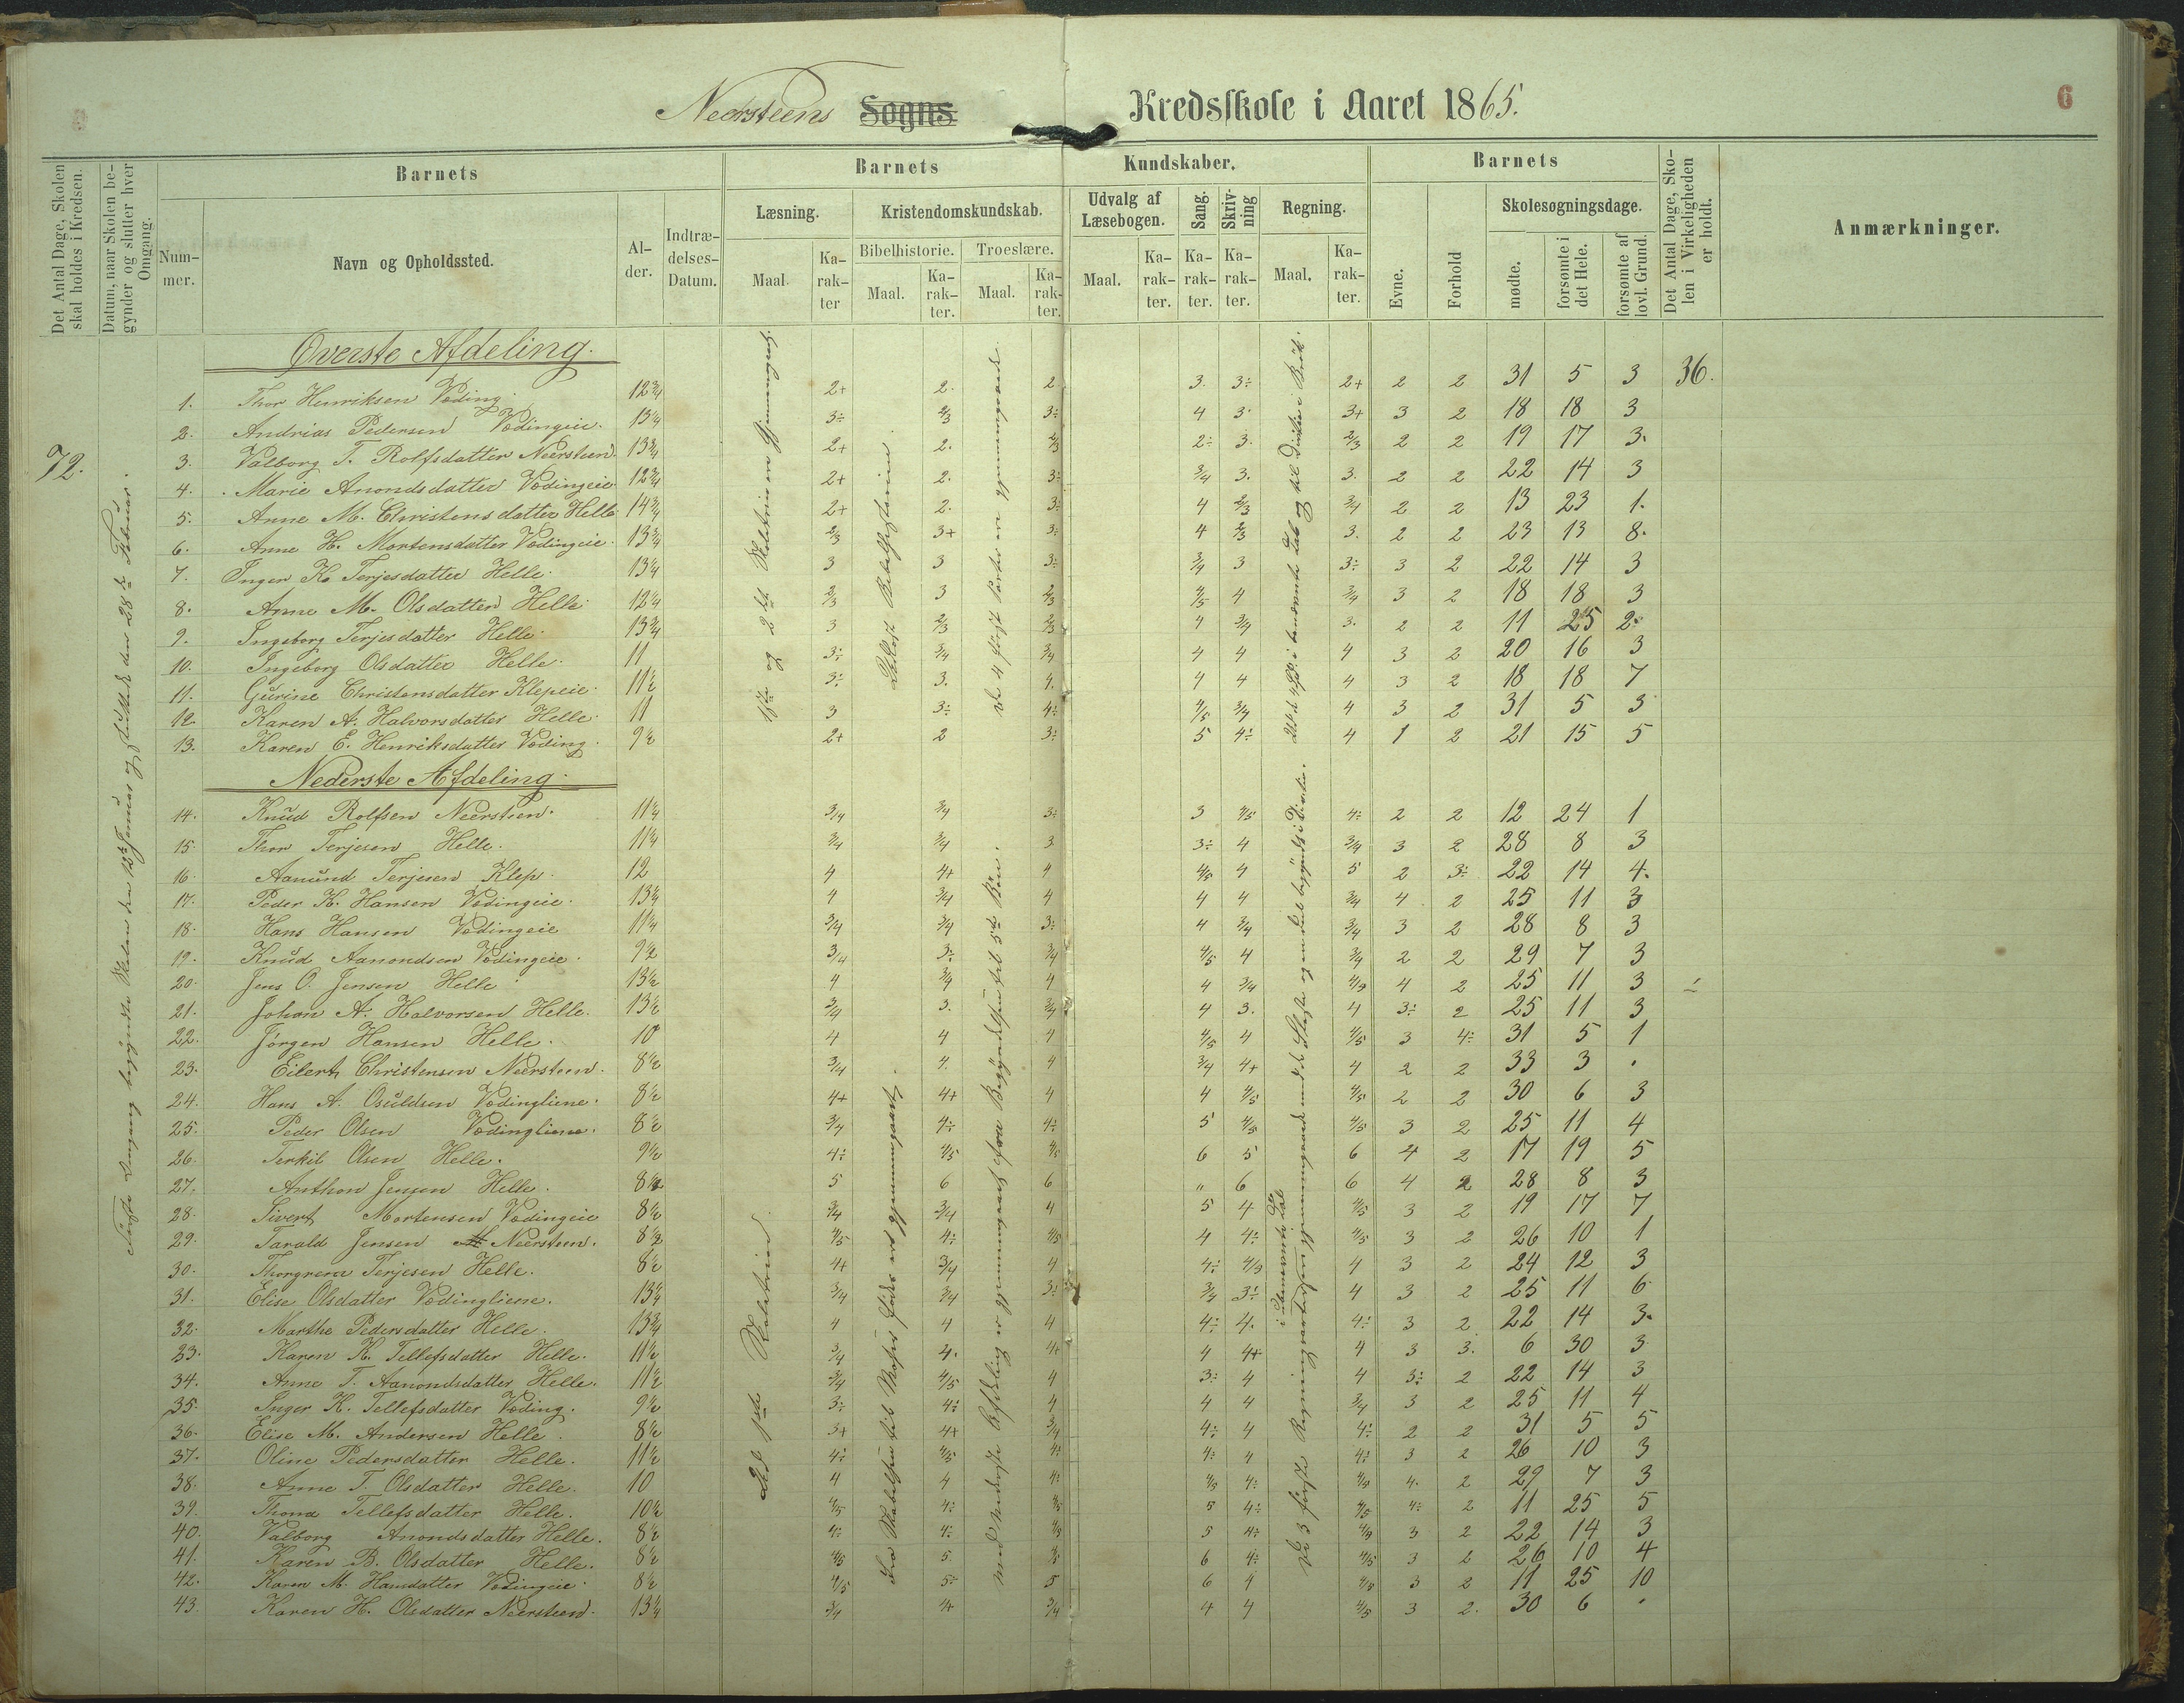 6
Neersteens Sogns Kredsskole i Aaret 1865.
Det Antal Dage, Skolen skal holdes i Kredsen.
Datum, naar Skolen begynder og slutter hver Omgang.
Barnets
Nummer.
Navn og Opholdssted.
Alder.
Indtrædelses-Datum.
Barnets Kundskaber.
Læsning.
Maal.
Karakter
Kristendomskundskab.
Bibelhistorie.
Maal.
Karakter.
Troeslære.
Maal.
Karakter.
Udvalg af Læsebogen.
Maal.
Karakter.
Sang.
Karakter.
Skrivning
Karakter.
Regning.
Maal.
Karakter.
Barnets
Evne.
Forhold
Skolesøgningsdage.
mødte.
forsømte i det Hele.
forsømte af lovl. Grund.
Det Antal Dage, Skolen i Virkeligheden er holdt.
Anmærkninger.
72.
Øverste Afdeling.
1. Thor Henriksen Vøding. 12 3/4 2+ 2. 2 3. 3÷ 2+ 2 2 31 5 3 36.
2. Andrias Pedersen Vødingeie. 13 1/4 3÷ 2/3 3÷ 4 3. 3+ 3 2 18 18 3
3. Valborg T. Rolfsdatter Neersteen. 13 3/4 2+ 2. 2/3 2÷ 3. 2/3 2 2 19 17 3.
4. Marie Anondsdatter Vødingeie 12 3/4 2+ 2. 3÷ 3/4 3. 3. 2 2 22 14 3
5. Anne M. Christensdatter Helle 14 3/4 2+ 2. 3÷ 4 2/3 3/4 2 2 13 23 1.
6. Anne H. Mortensdatter Vødingeie. 13 3/4 2/3 3+ 3÷ 4 2/3 3. 2 2 23 13 8.
7. Inger K. Terjesdatter Helle. 13 1/4 3 3 3÷ 3/4 3 3÷ 3 2 22 14 3
8. Anne M. Olsdatter Helle 12 1/4 2/3 3 2/3 4/5 4 3/4 3 2 18 18 3
9. Ingeborg Terjesdatter Helle. 13 3/4 3 2/3 2/3 4 3/4 3. 2 2 11 25 2.
10. Ingeborg Olsdatter Helle. 11 3÷ 3/4 3/4 4 4 4 3 2 20 16 3
11. Gurine Christensdatter Klepeie. 11 1/2 3÷ 3. 4. 4 4 4 3 2 18 18 7
12. Karen A. Halvorsdatter Helle. 11 3 3÷ 4÷ 4/5 3/4 4 3 2 31 5 3
13. Karen E. Henriksdatter Vøding. 9 1/2 2+ 2 3÷ 5 4÷ 4 1 2 21 15 5
Nederste Afdeling.
14. Knud Rolfsen Neersteen. 11 1/4 3/4 3/4 3÷ 3 4/5 4÷ 2 2 12 24 1
15. Thor Terjesen Helle. 11 1/4 3/4 3/4 3 3÷ 4 3/4 3 2 28 8 3
16. Aanund Terjesen Klep. 12 4 4+ 4 4/5 4 5 2 3÷ 22 14 4.
17. Peder K. Hansen Vødingeie. 13 1/2 4 3/4 4 4 4 3/4 4 2 25 11 3
18. Hans Hansen Vødingeie 11 1/4 3/4 3/4 3÷ 4 3/4 3/4 3 2 28 8 3
19. Knud Aanondsen Vødingeie. 9 1/2 3/4 3÷ 3/4 4/5 4 3/4 2 2 29 7 3
20. Jens O. Jensen Helle 13 1/2 4 3/4 4 4 3/4 4/5 4 2 25 11 3
21. Johan A. Halvorsen Helle. 13 1/2 3/4 3. 3/4 4 3. 4 3÷ 2 25 11 3
22. Jørgen Hansen Helle. 10 4 4 4 4/5 4 4/5 3 4÷ 31 5 1
23. Eilert Christensen Neersteen. 8 1/2 3/4 4. 4 3/4 4+ 4 2 2 33 3 .
24. Hans A. Osuldsen Vødingliene. 8 1/2 4+ 4+ 4 4 4/5 4/5 2 2 30 6 3
25. Peder Olsen Vødingliene. 8 1/2 3/4 4÷ 4÷ 5 4/5 4/5 3 2 25 11 4
26. Terkil Olsen Helle. 9 1/2 4÷ 4/5 4/5 6 5 6 4 2 17 19 5
27. Anthon Jensen Helle. 8 1/2 5 6 6 „ 6 6 4 2 28 8 3
28. Sivert Mortensen Vødingeie 8 1/2 3/4 3/4 4 5 4 4/5 3 2 19 17 7
29. Tarald Jensen Neersteen. 8 1/2 4/5 4÷ 4/5 4 4÷ 4/5 3 2 26 10 1
30. Terjesen Helle. 8 1/2 4+ 3/4 4 4÷ 4/5 4 3 2 24 12 3
31. Elise Olsdatter Vødingliene. 13 1/4 3/4 3/4 3÷ 3/4 3÷ 4 3 2 25 11 6
32. Marthe Pedersdatter Helle. 13 3/4 4 4 4 4÷ 4. 4÷ 3 2 22 14 3.
33. Karen K. Tellefsdatter Helle. 11 1/2 3/4 4. 4+ 4 4+ 4 3 3. 6 30 3
34. Anne T. Aanondsdatter Helle. 11 1/2 3/4 4/5 4 3÷ 4 4 3÷ 2 22 14 3
35. Inger K. Tellefsdatter Vøding. 9 1/2 3÷ 4÷ 4 4 4 3/4 3 2 25 11 4
36. Elise M. Andersen Helle. 8 1/2 3+ 4+ 3/4 4÷ 4 4÷ 2 2 31 5 5
37. Oline Pedersdatter Helle. 11 1/2 4÷ 4/5 4÷ 4÷ 4 4÷ 3 2 26 10 3
38. Anne T. Olsdatter Helle. 10 4 4 4÷ 4/5 4÷ 4/5 4. 2 29 7 3
39. Thona Tellefsdatter Helle. 10 1/2 4/5 4÷ 4/5 5 4÷ 4/5 4÷ 2 11 25 5
40. Valborg Anondsdatter Helle. 8 1/2 4÷ 4÷ 4/5 5 4÷ 4/5 3 2 22 14 3
41. Karen B. Olsdatter Helle. 8 1/2 4/5 5. 4/5 6 4÷ 4/5 3 2 26 10 4
42. Karen M. Hansdatter Vødingeie. 8 1/2 4/5 5÷ 5 6 4 4/5 3 2 11 25 10
43. Karen H. Olsdatter Neersteen. 13 1/4 3/4 4 3/4 4 4 4/5 3 2. 30 6 .
Første Omgang begyndte Skolen den 12te Januar og sluttede den 28de Februar.
1ste og 2det Skoletrin er Gjennemgaaet.
Til 1ste Skoletrin.
Læst Bibelhistorien
Fra Skabelsen til Mosis føds. er gjennemgaaet.
de 4 først Parter er gjennemgaaede.
med nederste Afdeling er gjennemgaaet fra Begyndelsen til 5te Bøn.
De 3 første Regningsarter er gjennemgaaede
i ubenævnte Tal